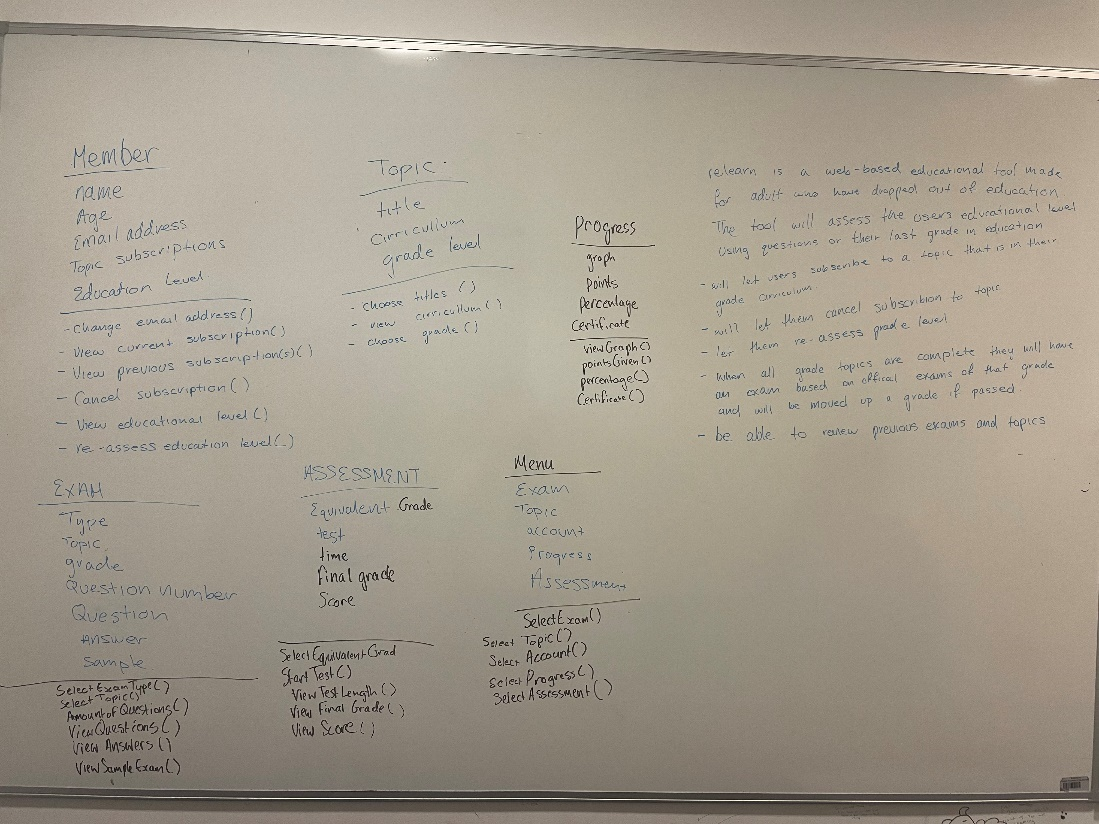 Member
name
Age
Email address
Topic subscriptions
Education Level
- Change email address()
- View current subscription()
- View previous subscription(s)()
- Cancel subscription()
- View educational level()
- re-assess education level()
Topic
title
cirricullum
grade level
- choose titles ()
- view cirricullum()
- choose grade()
Progress
graph
points
percentage
Certificate
viewGraph()
pointsGiven()
percentage()
Certificate()
relearn is a web-based educational tool made
for adult who have dropped out of education
The tool will assess the users educational level
using questions or their last grade in education
- will let users subscribe to a topic that is in their
grade cirriculum
- will let them cancel subscribtion to topic
- let them re-assess grade level
- when all grade topics are complete they will have
an exam based on offical exams of that grade
and will be moved up a grade if passed.
- be able to review previous exams and topics
EXAM
Type
Topic
grade
Question number
Question
Answer
Sample
SelectExamType()
Select Topic()
AmountofQuestions()
ViewQuestions()
View Answers()
ViewSampleExam()
ASSESSMENT
Equivalent Grade
test
time
final grade
Score
SelectEquivalentGrad
Start Test()
View Test Length()
View Final Grade()
View Score()
Menu
Exam
Topic
account
Progress
Assessment
SelectExam()
Select Topic()
Select Account()
Select Progress()
Select Assessment()